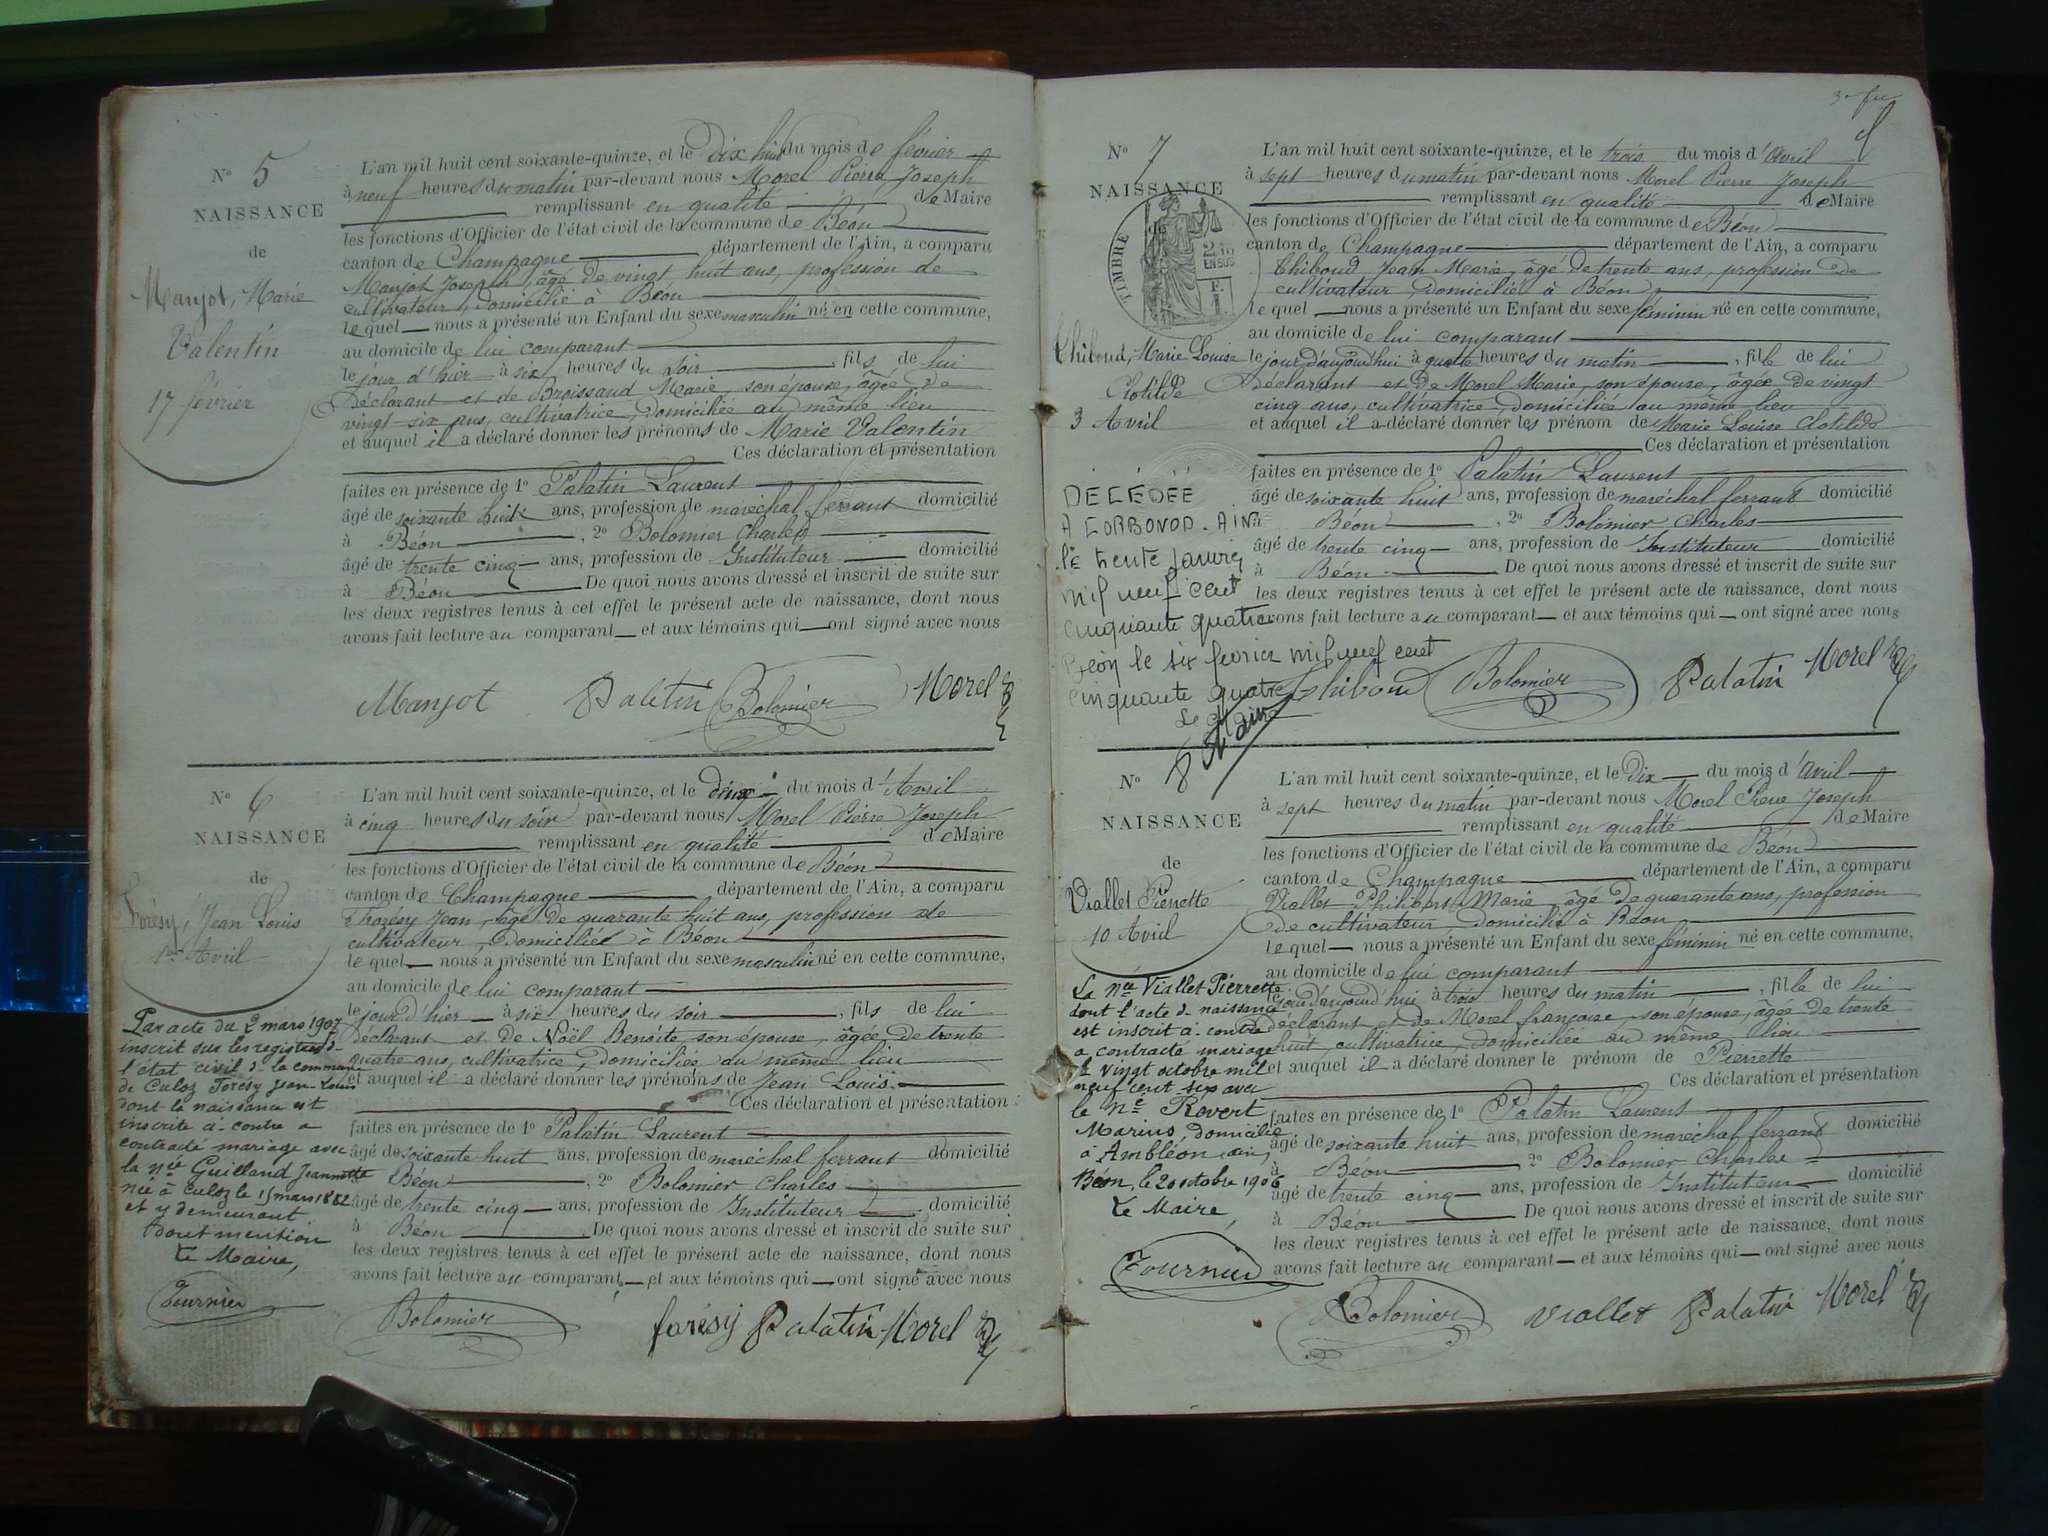 N° 5
NAISSANCE
de
Manjot, Marie
Valentin
17 février
L'an mil huit cent soixante-quinze, et le Dix huit du mois de février
à neuf heures du matin par-devant nous Morel Pierre Joseph
remplissant en qualité de Maire
les fonctions d'Officier de l'état civil de la commune de Béon
canton de Champagne département de l'Ain, a comparu
Manjot Joseph, âgé de vingt huit ans, profession de
cultivateur, domicilié à Béon
lequel nous a présenté un Enfant du sexe masculin né en cette commune,
au domicile de lui comparant
le jour d'hier à six heures du soir, fils de lui
Déclarant et de Broissand Marie, son épouse, âgée de
vingt-six ans, cultivatrice, domiciliée au même lieu
et auquel il a déclaré donner les prénoms de Marie Valentin
Ces déclaration et présentation
faites en présence de 1° Palatin Laurent
âgé de soixante huit ans, profession de maréchal ferrant domicilié
à Béon, 2° Bolomier Charles
âgé de trente cinq ans, profession de Instituteur domicilié
à Béon De quoi nous avons dressé et inscrit de suite sur
les deux registres tenus à cet effet le présent acte de naissance, dont nous
avons fait lecture au comparant et aux témoins qui ont signé avec nous
Manjot Palatin Bolomier Morel
N° 6
NAISSANCE
de
Forésy, Jean Louis
1er Avril
Par acte du 2 mars 1907
inscrit sur les registres de
l'état civil de la commune
de Culoz Forésy Jean-Louis
dont la naissance est
inscrite ci-contre a
contracté mariage avec
la née Guilland Jeannette
née à Culoz le 15 mars 1882
et y demeurant
dont mention
Le Maire,
Fournier
L'an mil huit cent soixante-quinze, et le deux du mois d'Avril
à cinq heures du soir par-devant nous Morel Pierre Joseph
remplissant en qualité de Maire
les fonctions d'Officier de l'état civil de la commune de Béon
canton de Champagne département de l'Ain, a comparu
Forésy Jean, âgé de quarante huit ans, profession de
cultivateur, domicilié à Béon
lequel nous a présenté un Enfant du sexe masculin né en cette commune,
au domicile de lui comparant
le jour d'hier à six heures du soir, fils de lui
déclarant et de Noël Benoite son épouse, âgée de trente
quatre ans, cultivatrice, domiciliée au même lieu
et auquel il a déclaré donner les prénoms de Jean Louis
Ces déclaration et présentation
faites en présence de 1° Palatin Laurent
âgé de soixante-huit ans, profession de maréchal ferrant domicilié
Béon, 2° Bolomier Charles
âgé de trente cinq ans, profession de Instituteur domicilié
à Béon De quoi nous avons dressé et inscrit de suite sur
les deux registres tenus à cet effet le présent acte de naissance, dont nous
avons fait lecture au comparant et aux témoins qui ont signé avec nous
Bolomier forésy Palatin Morel
N° 7
NAISSANCE
de
TIMBRE
Thiboud, Marie Louise
Clotilde
3 Avril
DÉCÉDÉE
A CORBONOD - AIN
le trente janvier
mil neuf cent
cinquante quatre
Béon le six février mil neuf cent
cinquante quatre
Le Maire
L'an mil huit cent soixante-quinze, et le trois du mois d'Avril
à sept heures du matin par-devant nous Morel Pierre Joseph
remplissant en qualité de Maire
les fonctions d'Officier de l'état civil de la commune de Béon
canton de Champagne département de l'Ain, a comparu
Thiboud Jean Marie, âgé de trente ans, profession de
cultivateur, domicilié à Béon
lequel nous a présenté un Enfant du sexe féminin né en cette commune,
au domicile de lui comparant
le jour d'aujourd'hui à quatre heures du matin, fille de lui
Déclarant et de Morel Marie, son épouse, âgée de vingt
cinq ans, cultivatrice, domiciliée au même lieu
et auquel il a déclaré donner les prénom de Marie Louise Clotilde
Ces déclaration et présentation
faites en présence de 1° Palatin Laurent
âgé de soixante huit ans, profession de maréchal ferrant domicilié
Béon, 2° Bolomier Charles
âgé de trente cinq ans, profession de Instituteur domicilié
à Béon De quoi nous avons dressé et inscrit de suite sur
les deux registres tenus à cet effet le présent acte de naissance, dont nous
avons fait lecture au comparant et aux témoins qui ont signé avec nous
Thiboud Bolomier Palatin Morel
N° 8
NAISSANCE
de
Viallet Pierrette
10 Avril
La née Viallet Pierrette
dont l'acte de naissance
est inscrit ci-contre
a contracté mariage
le vingt octobre mil
neuf cent six avec
le né Revert
Marius domicilié
à Ambléon (Ain)
Béon, le 20 octobre 1906
Le Maire,
Fournier
L'an mil huit cent soixante-quinze, et le Dix du mois d'Avril
à sept heures du matin par-devant nous Morel Pierre Joseph
remplissant en qualité de Maire
les fonctions d'Officier de l'état civil de la commune de Béon
canton de Champagne département de l'Ain, a comparu
Viallet Philibert Marie, âgé de quarante ans, profession
de cultivateur domicilié à Béon
lequel nous a présenté un Enfant du sexe féminin né en cette commune,
au domicile de lui comparant
le jour d'aujourd'hui à trois heures du matin, fille de lui
déclarant et de Morel françoise, son épouse, âgée de trente
huit, cultivatrice, domiciliée au même lieu
et auquel il a déclaré donner le prénom de Pierrette
Ces déclaration et présentation
faites en présence de 1° Palatin Laurent
âgé de soixante huit ans, profession de maréchal ferrant domicilié
à Béon, 2° Bolomier Charles
âgé de trente cinq ans, profession de Instituteur domicilié
à Béon De quoi nous avons dressé et inscrit de suite sur
les deux registres tenus à cet effet le présent acte de naissance, dont nous
avons fait lecture au comparant et aux témoins qui ont signé avec nous
Bolomier Viallet Palatin Morel